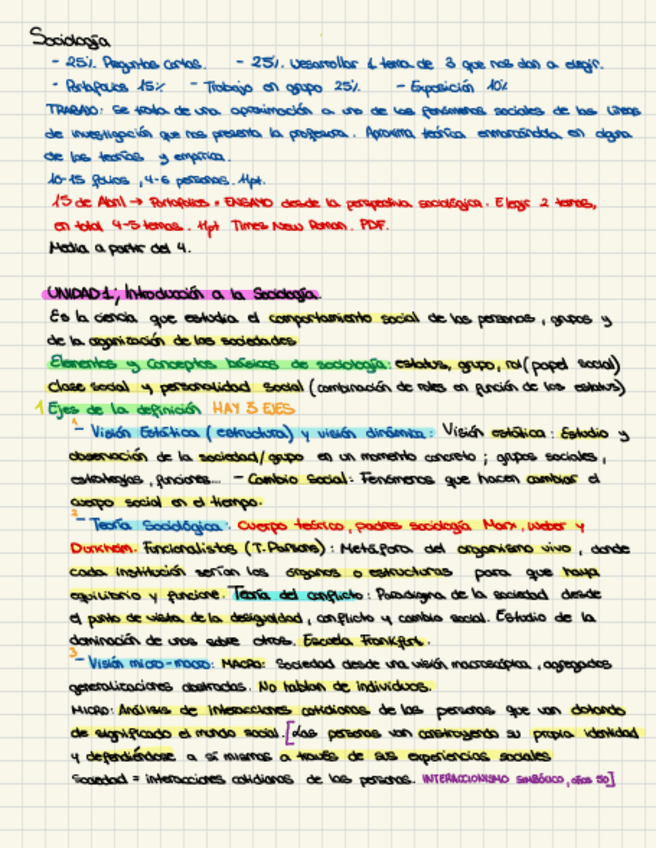 Sociología
- 25% Preguntas cortas. - 25% Desarrollar 1 tema de 3 que nos dan a elegir.
- Portafolios 15% - Trabajo en grupo 25% - Exposición 10%
TRABAJO: Se trata de una aproximación a uno de los fenómenos sociales de las líneas
de investigación que nos presenta la profesora. Aproxima teórica enmarcándola en alguna
de las teorías y empírica.
10-15 folios, 4-6 personas. 11pt.
15 de Abril → Portafolios = ENSAYO desde la perspectiva sociológica. Elegir 2 temas,
en total 4-5 temas. 11pt Times New Roman. PDF.
Media a partir del 4.
UNIDAD 1; Introducción a la Sociología.
Es la ciencia que estudia el comportamiento social de las personas, grupos y
de la organización de las sociedades
Elementos y Conceptos básicos de sociología: estatus, grupo, rol (papel social)
clase social y personalidad social (combinación de roles en función de los estatus)
1 Ejes de la definición HAY 3 EJES
1 - Visión Estática (estructura) y visión dinámica: Visión estática: Estudio y
observación de la sociedad/grupo en un momento concreto; grupos sociales,
estrategias, funciones... - Cambio Social: Fenómenos que hacen cambiar el
cuerpo social en el tiempo.
2 - Teoría Sociológica: Cuerpo teórico, padres sociología Marx, Weber y
Durkheim. Funcionalistas (T. Parsons): Metáfora del organismo vivo, donde
cada institución serían los órganos o estructuras para que haya
equilibrio y funcione. Teoría del conflicto: Paradigma de la sociedad desde
el punto de vista de la desigualdad, conflicto y cambio social. Estudio de la
dominación de unos sobre otros. Escuela Frankfurt.
3 - Visión micro-macro: MACRO: Sociedad desde una visión macroscópica, agregados
generalizaciones abstractas. No hablan de individuos.
MICRO: Análisis de interacciones cotidianas de las personas que van dotando
de significado el mundo social. [Las personas van construyendo su propia identidad
y defendiéndose a sí mismos a través de sus experiencias sociales
Sociedad = interacciones cotidianas de las personas. INTERACCIONISMO SIMBÓLICO, años 50]